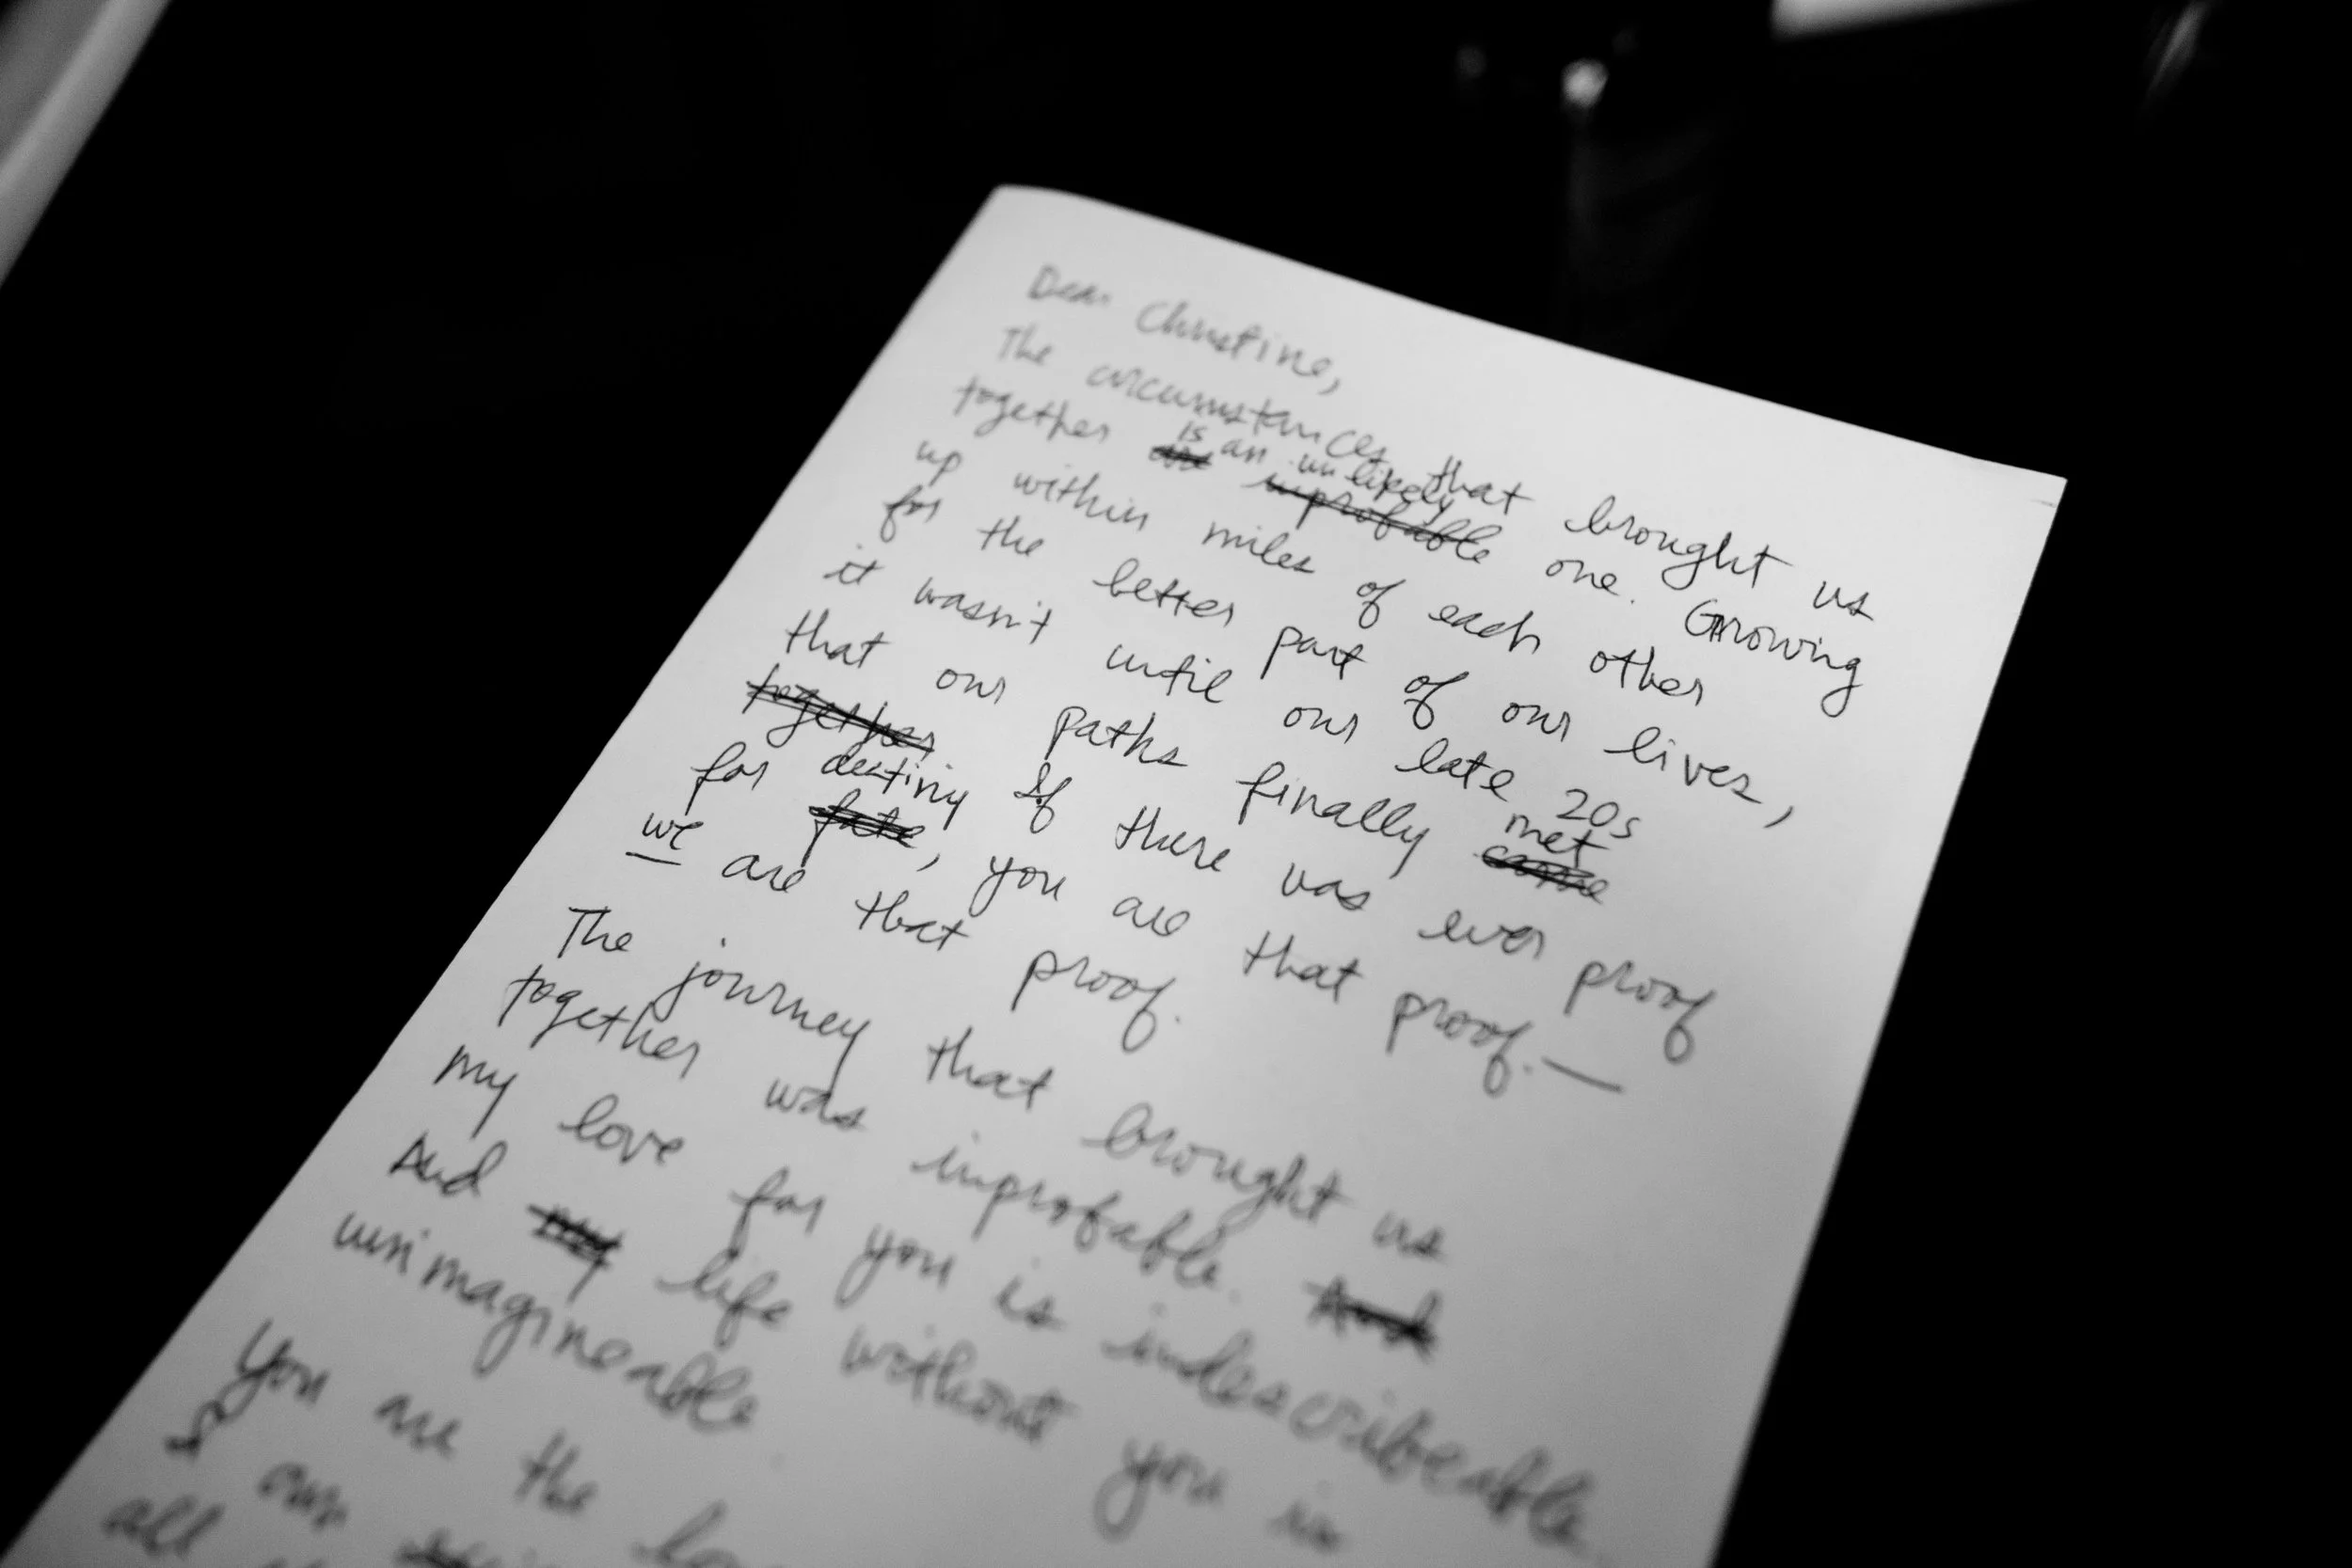 Dear Christine,
The circumstances that brought us
together are is an inprobable unlikely one. Growing
up within miles of each other
for the better part of our lives,
it wasn't until our late 20s
that our paths finally came met
together If there was ever proof
for fate destiny, you are that proof.—
we are that proof.
The journey that brought us
together was inprobable. And
my love for you is indescribeable.
And my life without you is
unimagineable.
You are the
I am
all